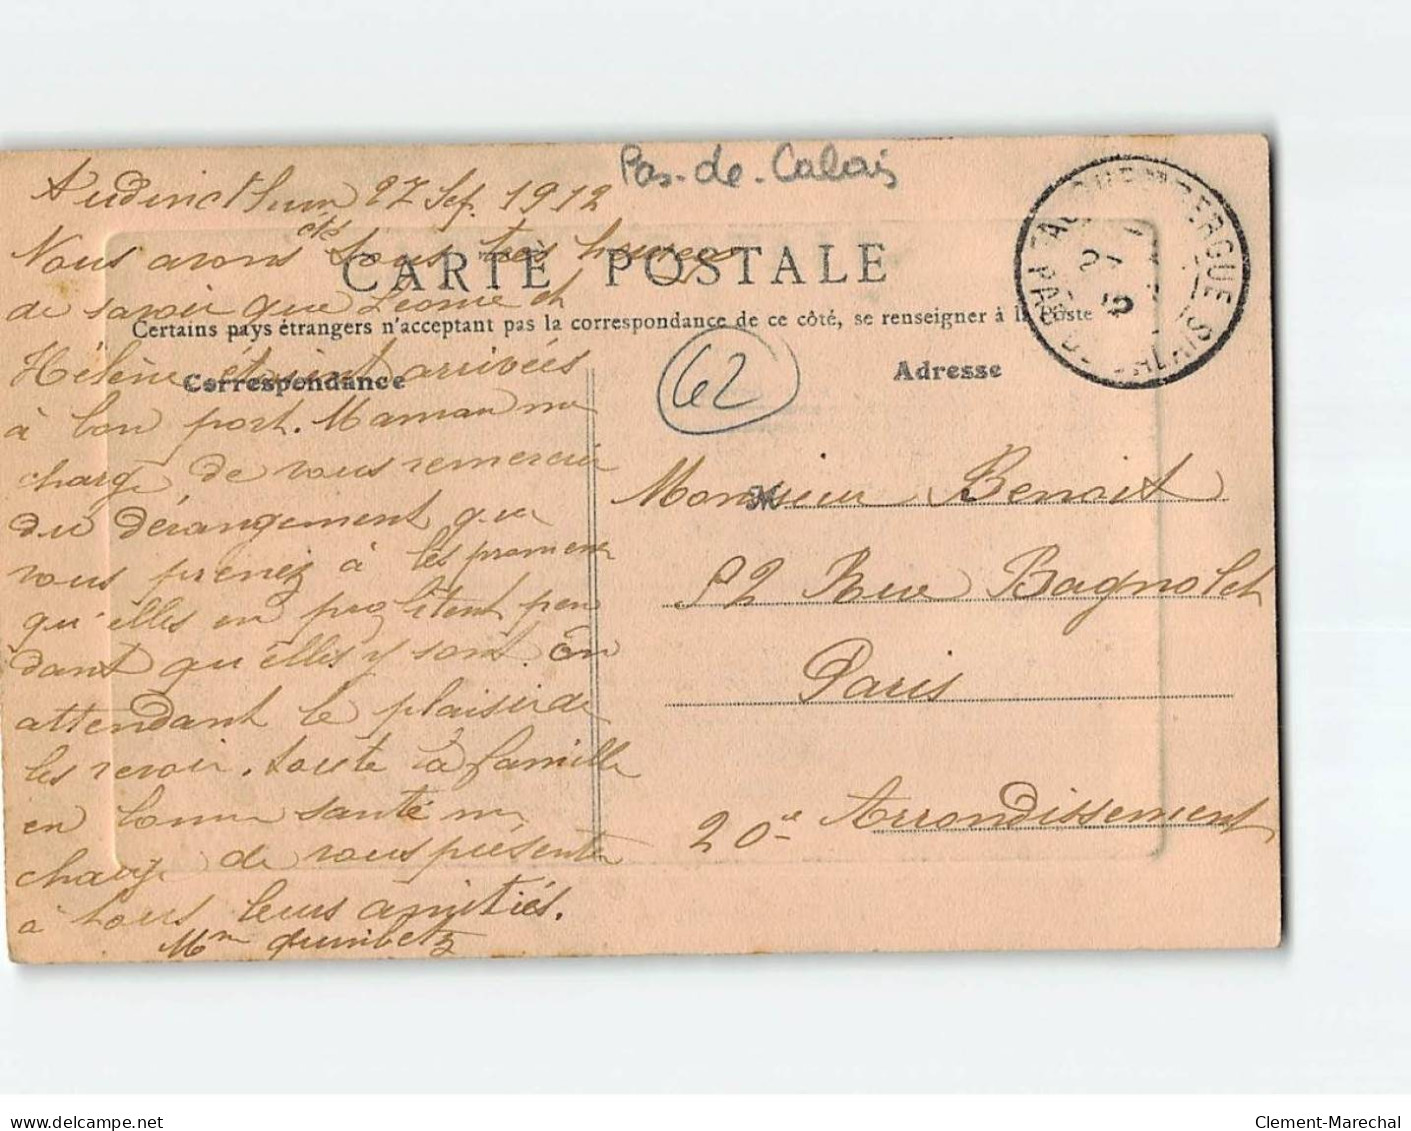 Pas-de-Calais
Audinct 27 Sep. 1912
CARTE POSTALE
Certains pays étrangers n'acceptent pas la correspondance de ce côté, se renseigner à la Poste
Correspondance
Nous avons été tous très heureux
de savoir que Léonie et
Hélène étaient arrivées
à bon port. Maman me
charge de vous remercier
du dérangement que
vous prenez à les promener
qu'elles en profitent pen
dant qu'elles y sont. En
attendant le plaisir de
les revoir. Toute la famille
en bonne santé me
charge de vous présenter
à tous leurs amitiés.
Adresse
62
FAUQUEMBERGUES
PAS-DE-
Monsieur Benoit
52 Rue Bagnolet
Paris
20e Arrondissement
delcampe.net
Clement-Marechal